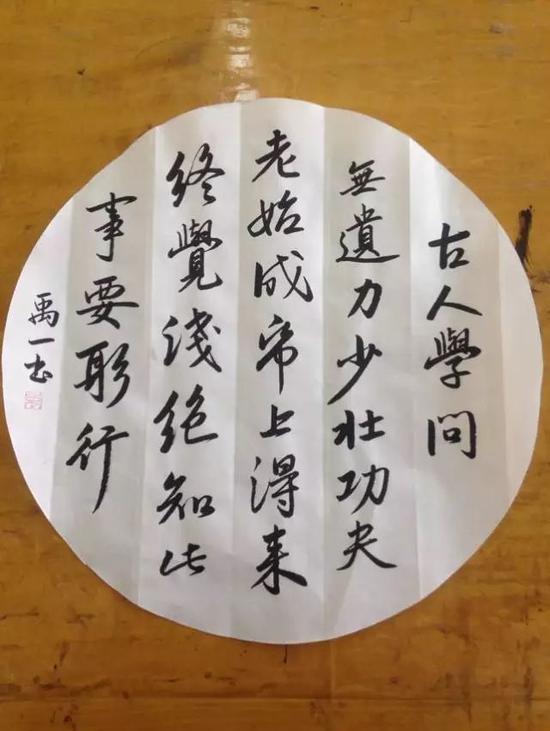 古人學問
無遺力少壮功夫
老始成帋上得来
終覺浅絶知此
事要躬行
禹一书